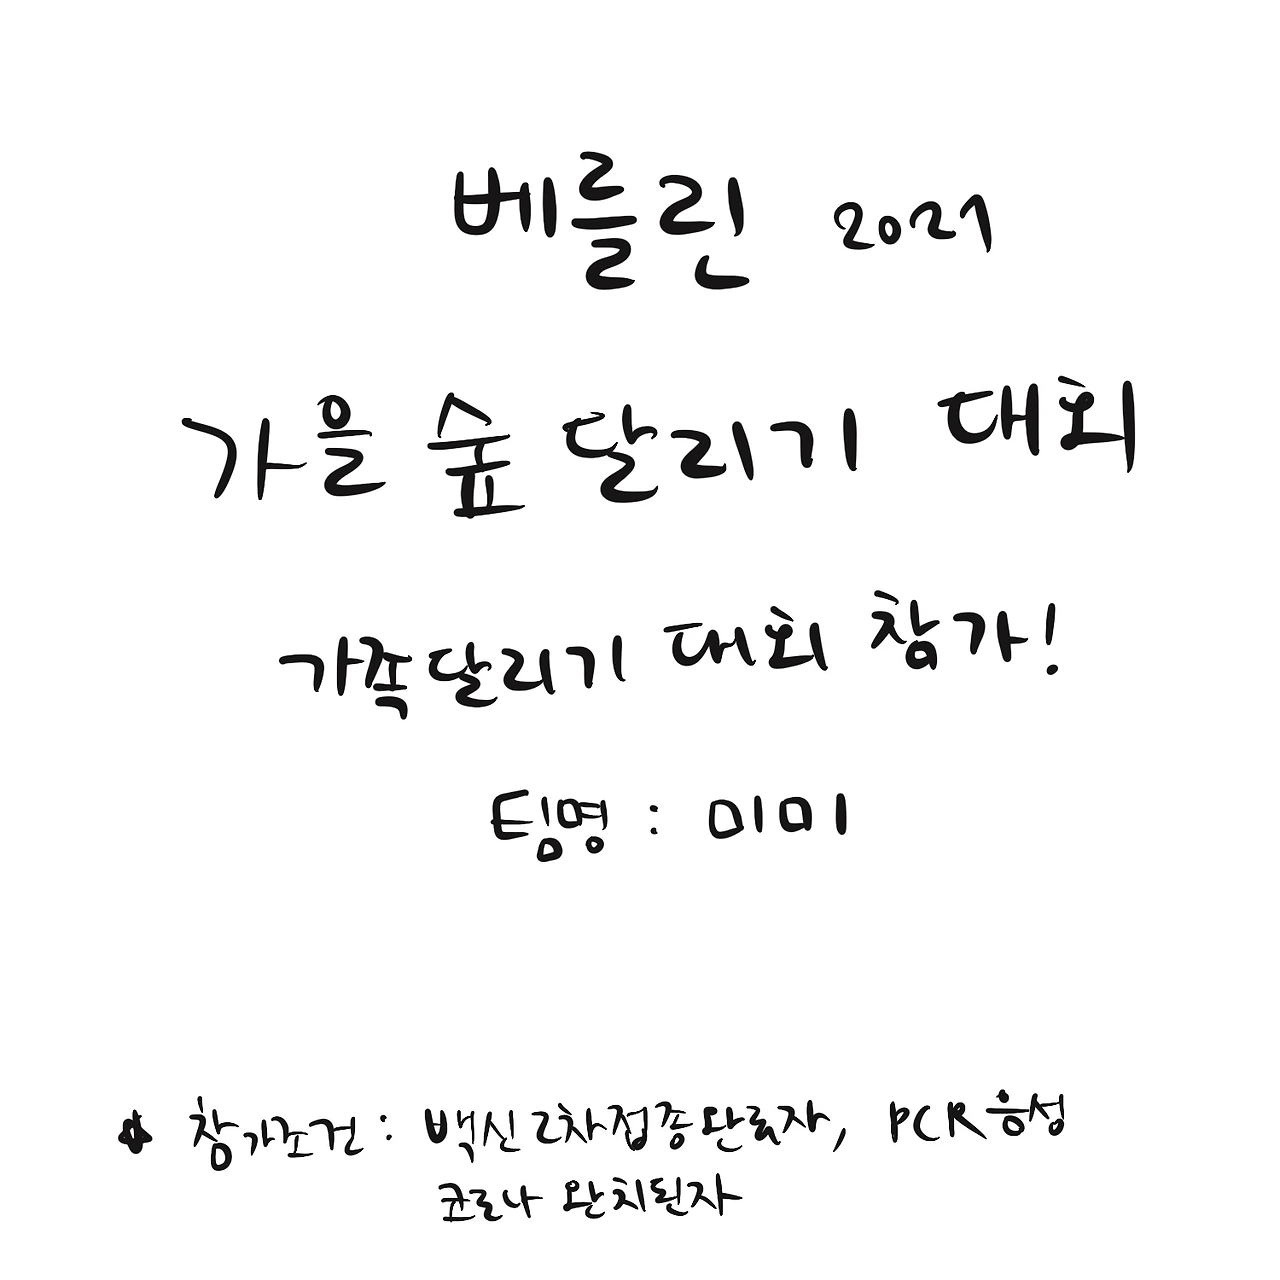 베를린 2021
가을 숲 달리기 대회
가족달리기 대회 참가!
팀명 : 미미
* 참가조건 : 백신 2차접종완료자, PCR음성
코로나 완치된자